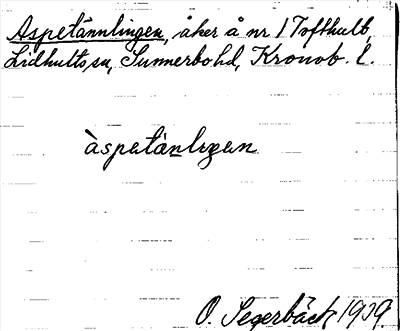 Aspetännlingen, åker å nr 1 Tofthult,
Lidhults sn, Sunnerbo hd, Kronob. l.
àspətánlıŋən
O. Segerbäck 1939